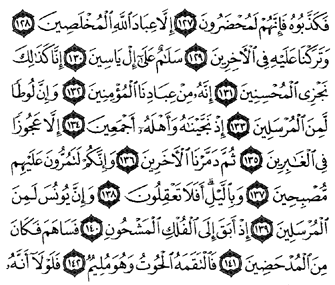 فَكَذَّبُوهُ فَإِنَّهُمْ لَمُحْضَرُونَ ١٢٧ إِلَّا عِبَادَ اللَّهِ الْمُخْلَصِينَ ١٢٨
وَتَرَكْنَا عَلَيْهِ فِي الْآخِرِينَ ١٢٩ سَلَامٌ عَلَىٰ إِلْ يَاسِينَ ١٣٠ إِنَّا كَذَٰلِكَ
نَجْزِي الْمُحْسِنِينَ ١٣١ إِنَّهُ مِنْ عِبَادِنَا الْمُؤْمِنِينَ ١٣٢ وَإِنَّ لُوطًا
لَّمِنَ الْمُرْسَلِينَ ١٣٣ إِذْ نَجَّيْنَاهُ وَأَهْلَهُ أَجْمَعِينَ ١٣٤ إِلَّا عَجُوزًا
فِي الْغَابِرِينَ ١٣٥ ثُمَّ دَمَّرْنَا الْآخَرِينَ ١٣٦ وَإِنَّكُمْ لَتَمُرُّونَ عَلَيْهِم
مُّصْبِحِينَ ١٣٧ وَبِاللَّيْلِ أَفَلَا تَعْقِلُونَ ١٣٨ وَإِنَّ يُونُسَ لَمِنَ
الْمُرْسَلِينَ ١٣٩ إِذْ أَبَقَ إِلَى الْفُلْكِ الْمَشْحُونِ ١٤٠ فَسَاهَمَ فَكَانَ
مِنَ الْمُدْحَضِينَ ١٤١ فَالْتَقَمَهُ الْحُوتُ وَهُوَ مُلِيمٌ ١٤٢ فَلَوْلَا أَنَّهُ